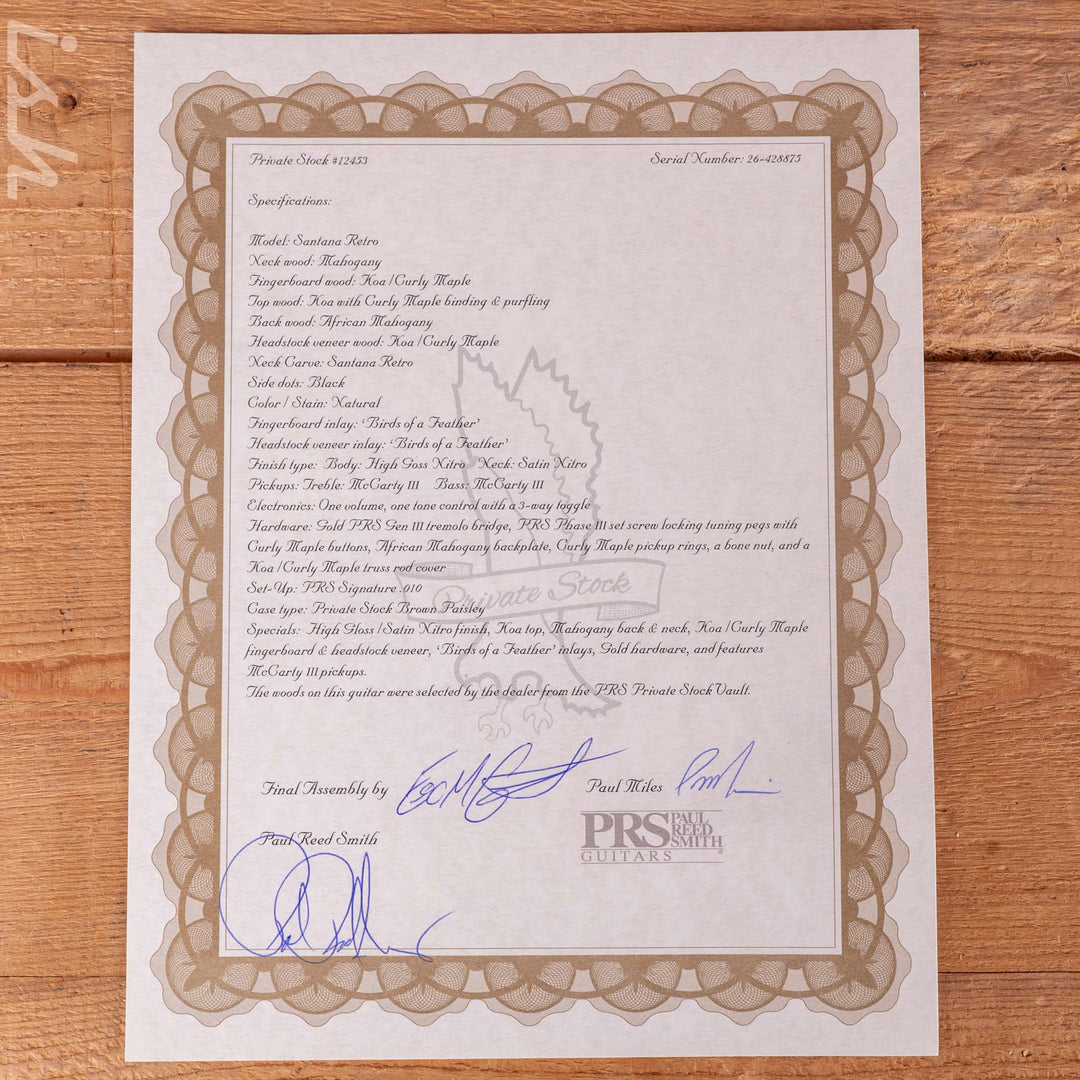 ish
Private Stock #12453 Serial Number: 26-428875
Specifications:
Model: Santana Retro
Neck wood: Mahogany
Fingerboard wood: Koa / Curly Maple
Top wood: Koa with Curly Maple binding & purfling
Back wood: African Mahogany
Headstock veneer wood: Koa / Curly Maple
Neck Carve: Santana Retro
Side dots: Black
Color / Stain: Natural
Fingerboard inlay: ‘Birds of a Feather’
Headstock veneer inlay: ‘Birds of a Feather’
Finish type: Body: High Goss Nitro Neck: Satin Nitro
Pickups: Treble: McCarty III Bass: McCarty III
Electronics: One volume, one tone control with a 3-way toggle
Hardware: Gold PRS Gen III tremolo bridge, PRS Phase III set screw locking tuning pegs with
Curly Maple buttons, African Mahogany backplate, Curly Maple pickup rings, a bone nut, and a
Koa / Curly Maple truss rod cover
Set-Up: PRS Signature .010
Private Stock
Case type: Private Stock Brown Paisley
Specials: High Gloss / Satin Nitro finish, Koa top, Mahogany back & neck, Koa / Curly Maple
fingerboard & headstock veneer, ‘Birds of a Feather’ inlays, Gold hardware, and features
McCarty III pickups.
The woods on this guitar were selected by the dealer from the PRS Private Stock Vault.
Final Assembly by Paul Miles
Paul Reed Smith
PRS PAUL REED SMITH
GUITARS